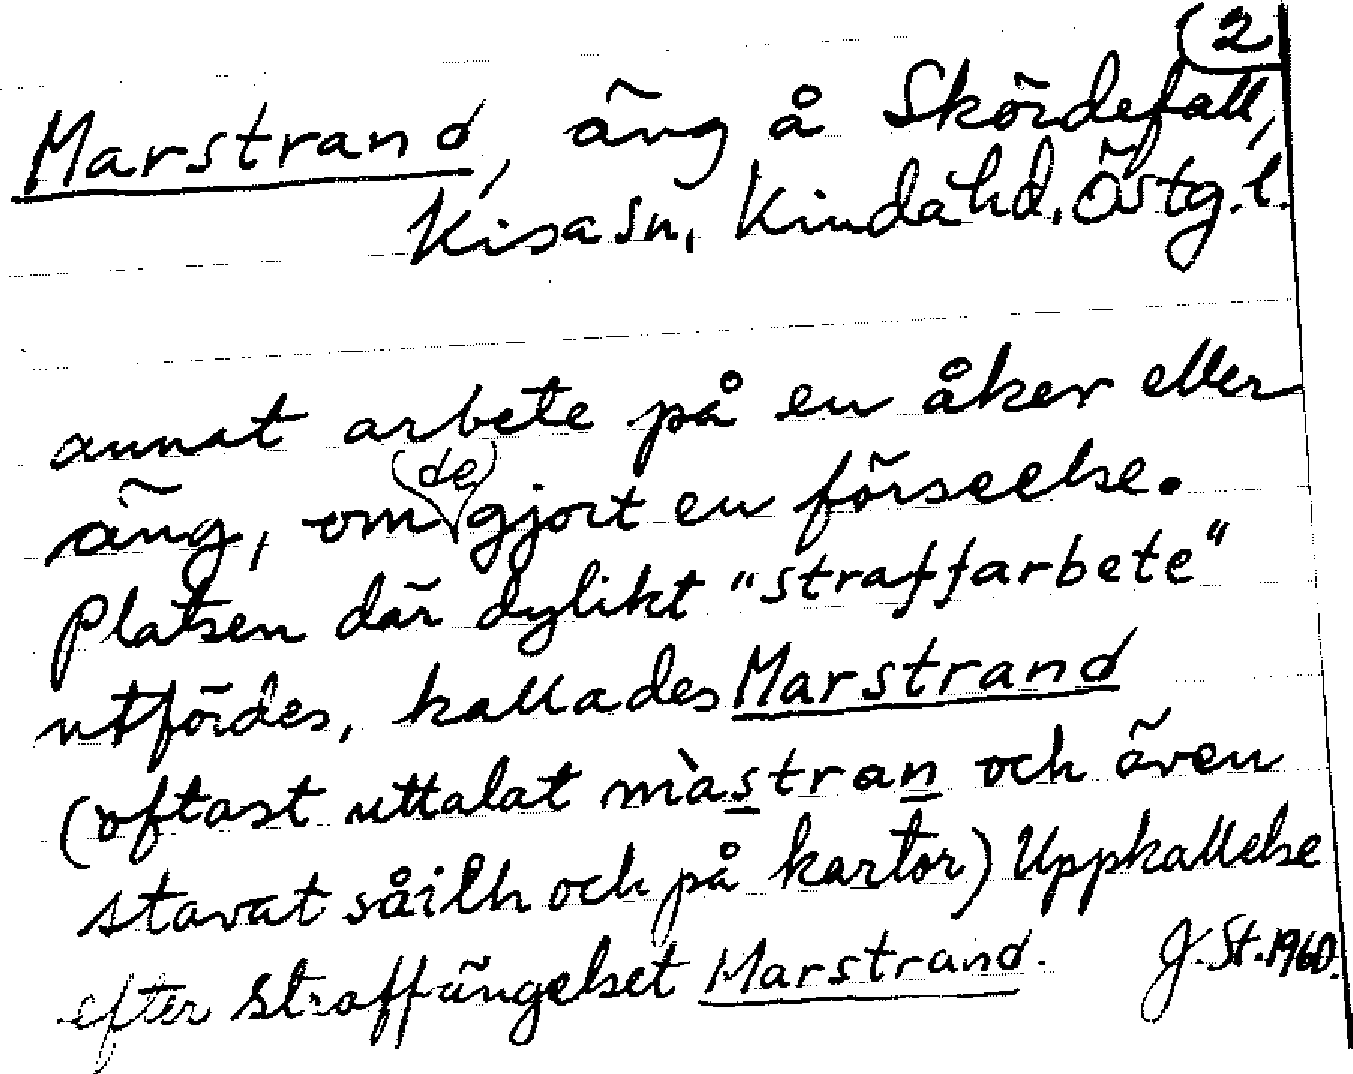 (2
Marstrand, äng å Skördefall,
Kisa sn, Kinda hd, Östg.l.
annat arbete på en åker eller
äng, om (de) gjort en förseelse.
Platsen där dylikt "straffarbete"
utfördes, kallades Marstrand
(oftast uttalat màstran och även
stavat så i lh och på kartor) Uppkallelse
efter straffängelset Marstrand. J. St. 1960.